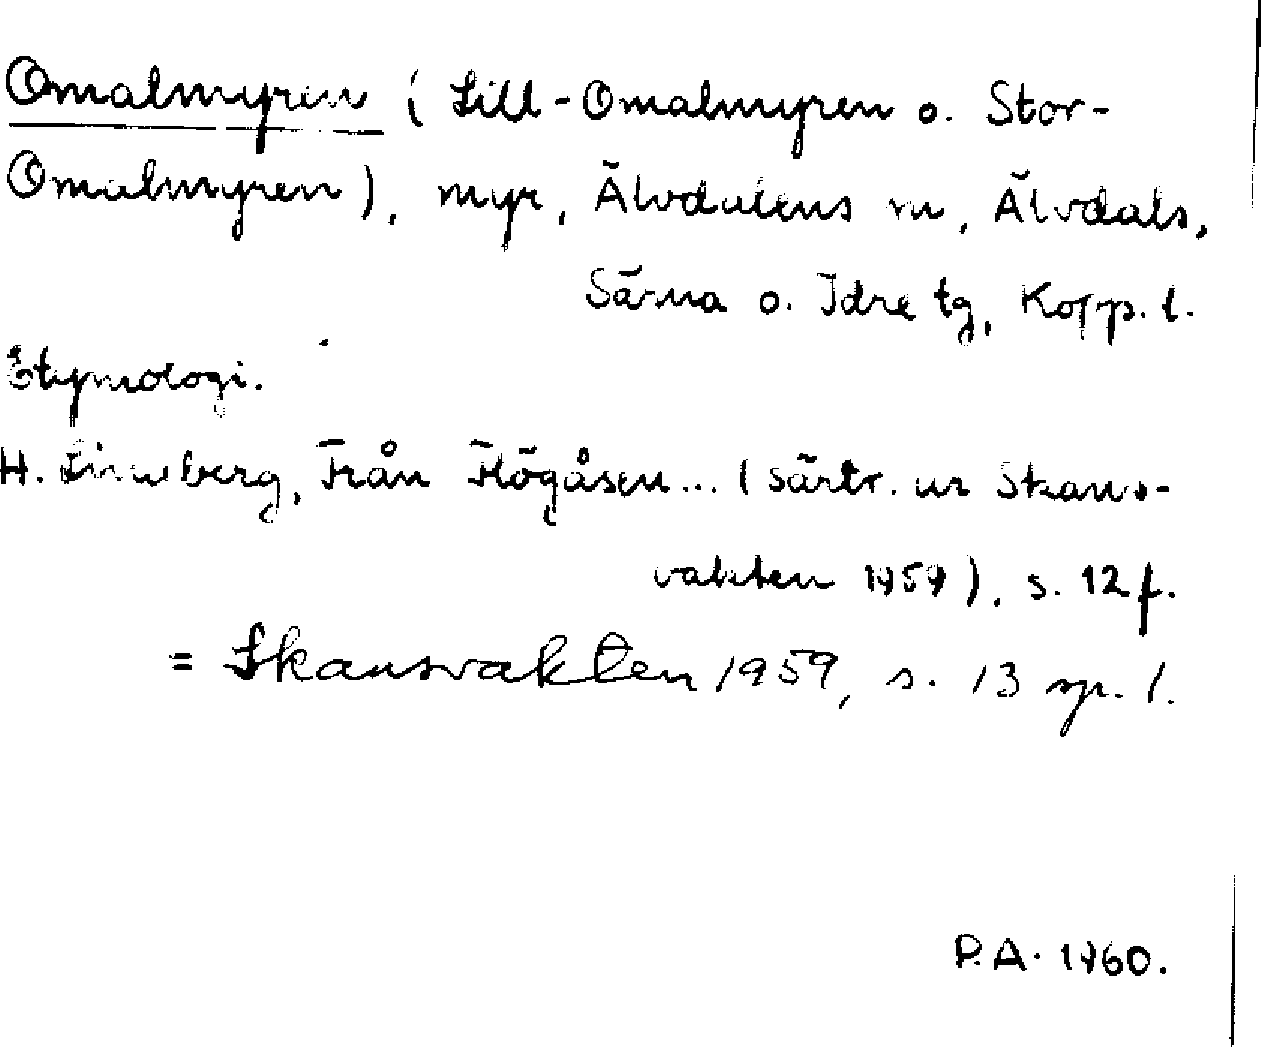 Omalmyren (Lill-Omalmyren o. Stor-
Omalmyren), myr, Älvdalens sn, Älvdals,
Särna o. Idre tg, Kopp. l.
Etymologi.
H. Linneberg, Från Högåsen... (särtr. ur Skans-
vakten 1959), s. 12 f.
= Skansvakten 1959, s. 13 sp. 1.
P.A. 1960.